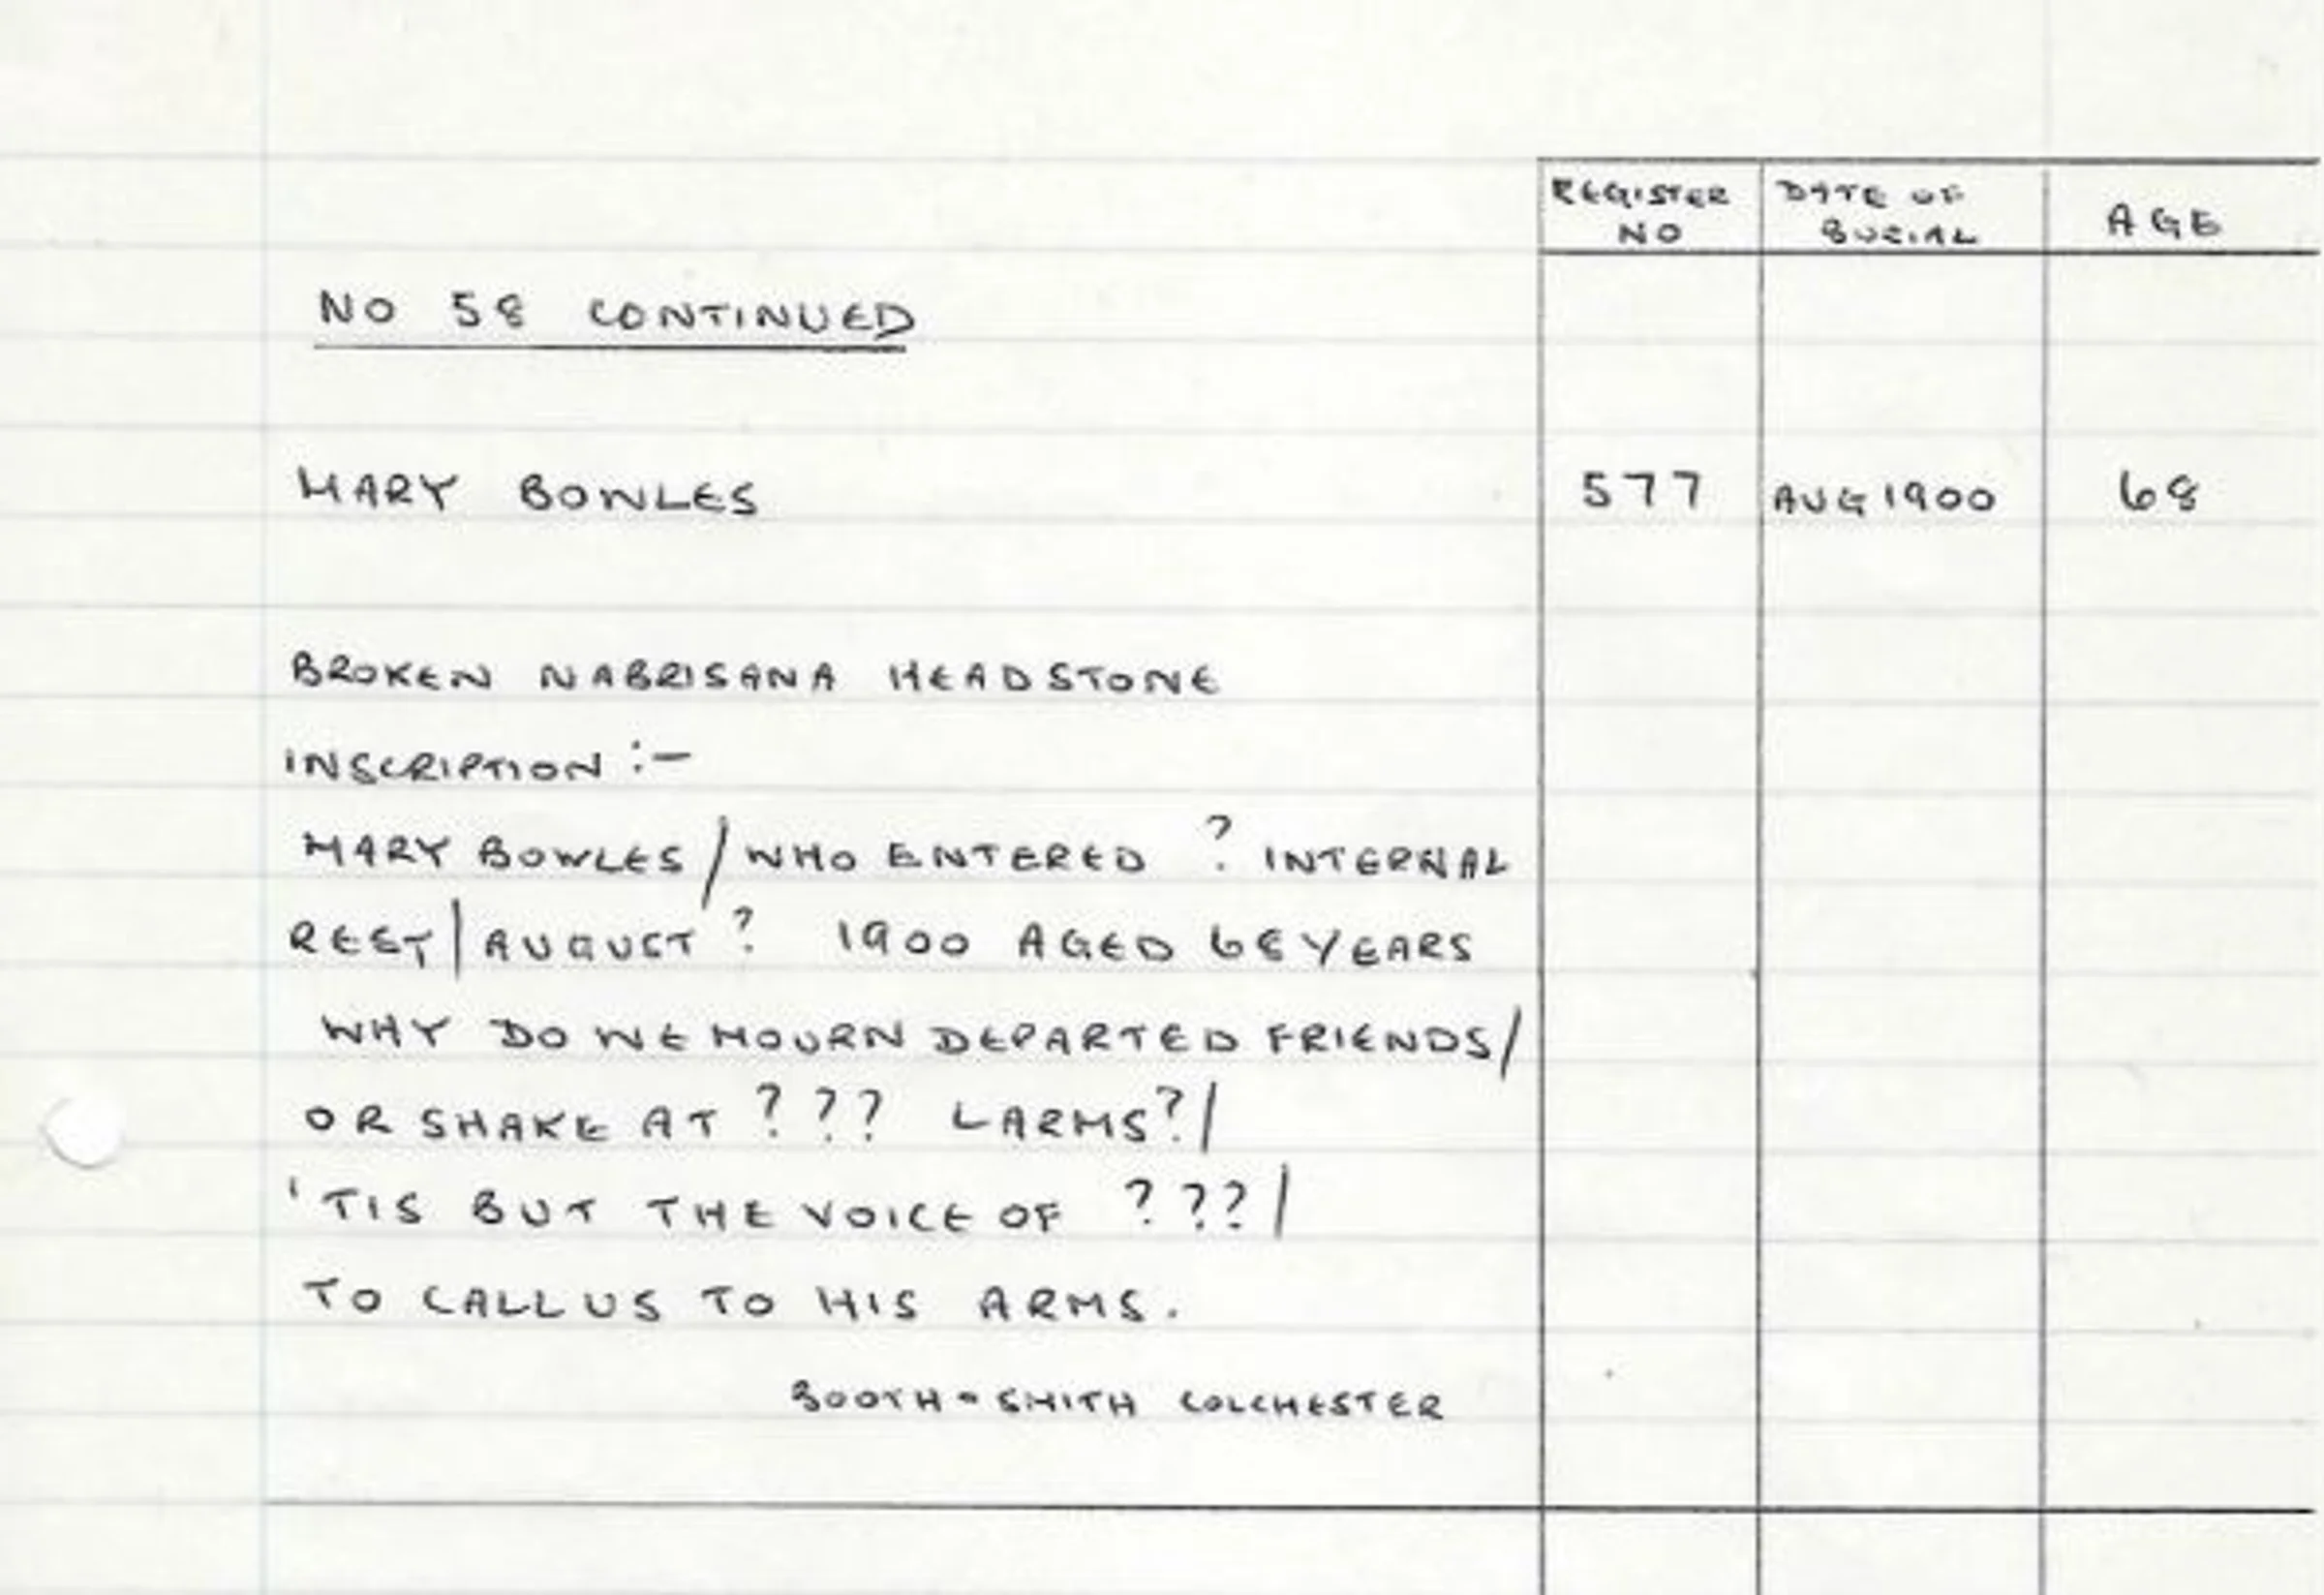 REGISTER NO DATE OF BURIAL AGE
NO 58 CONTINUED
MARY BOWLES 577 AUG 1900 68
BROKEN NABRISANA HEADSTONE
INSCRIPTION :-
MARY BOWLES / WHO ENTERED ? INTERNAL
REST / AUGUST ? 1900 AGED 68 YEARS
WHY DO WE MOURN DEPARTED FRIENDS /
OR SHAKE AT ? ? ? LARMS? /
'TIS BUT THE VOICE OF ? ? ? /
TO CALL US TO HIS ARMS.
BOOTH - SMITH COLCHESTER